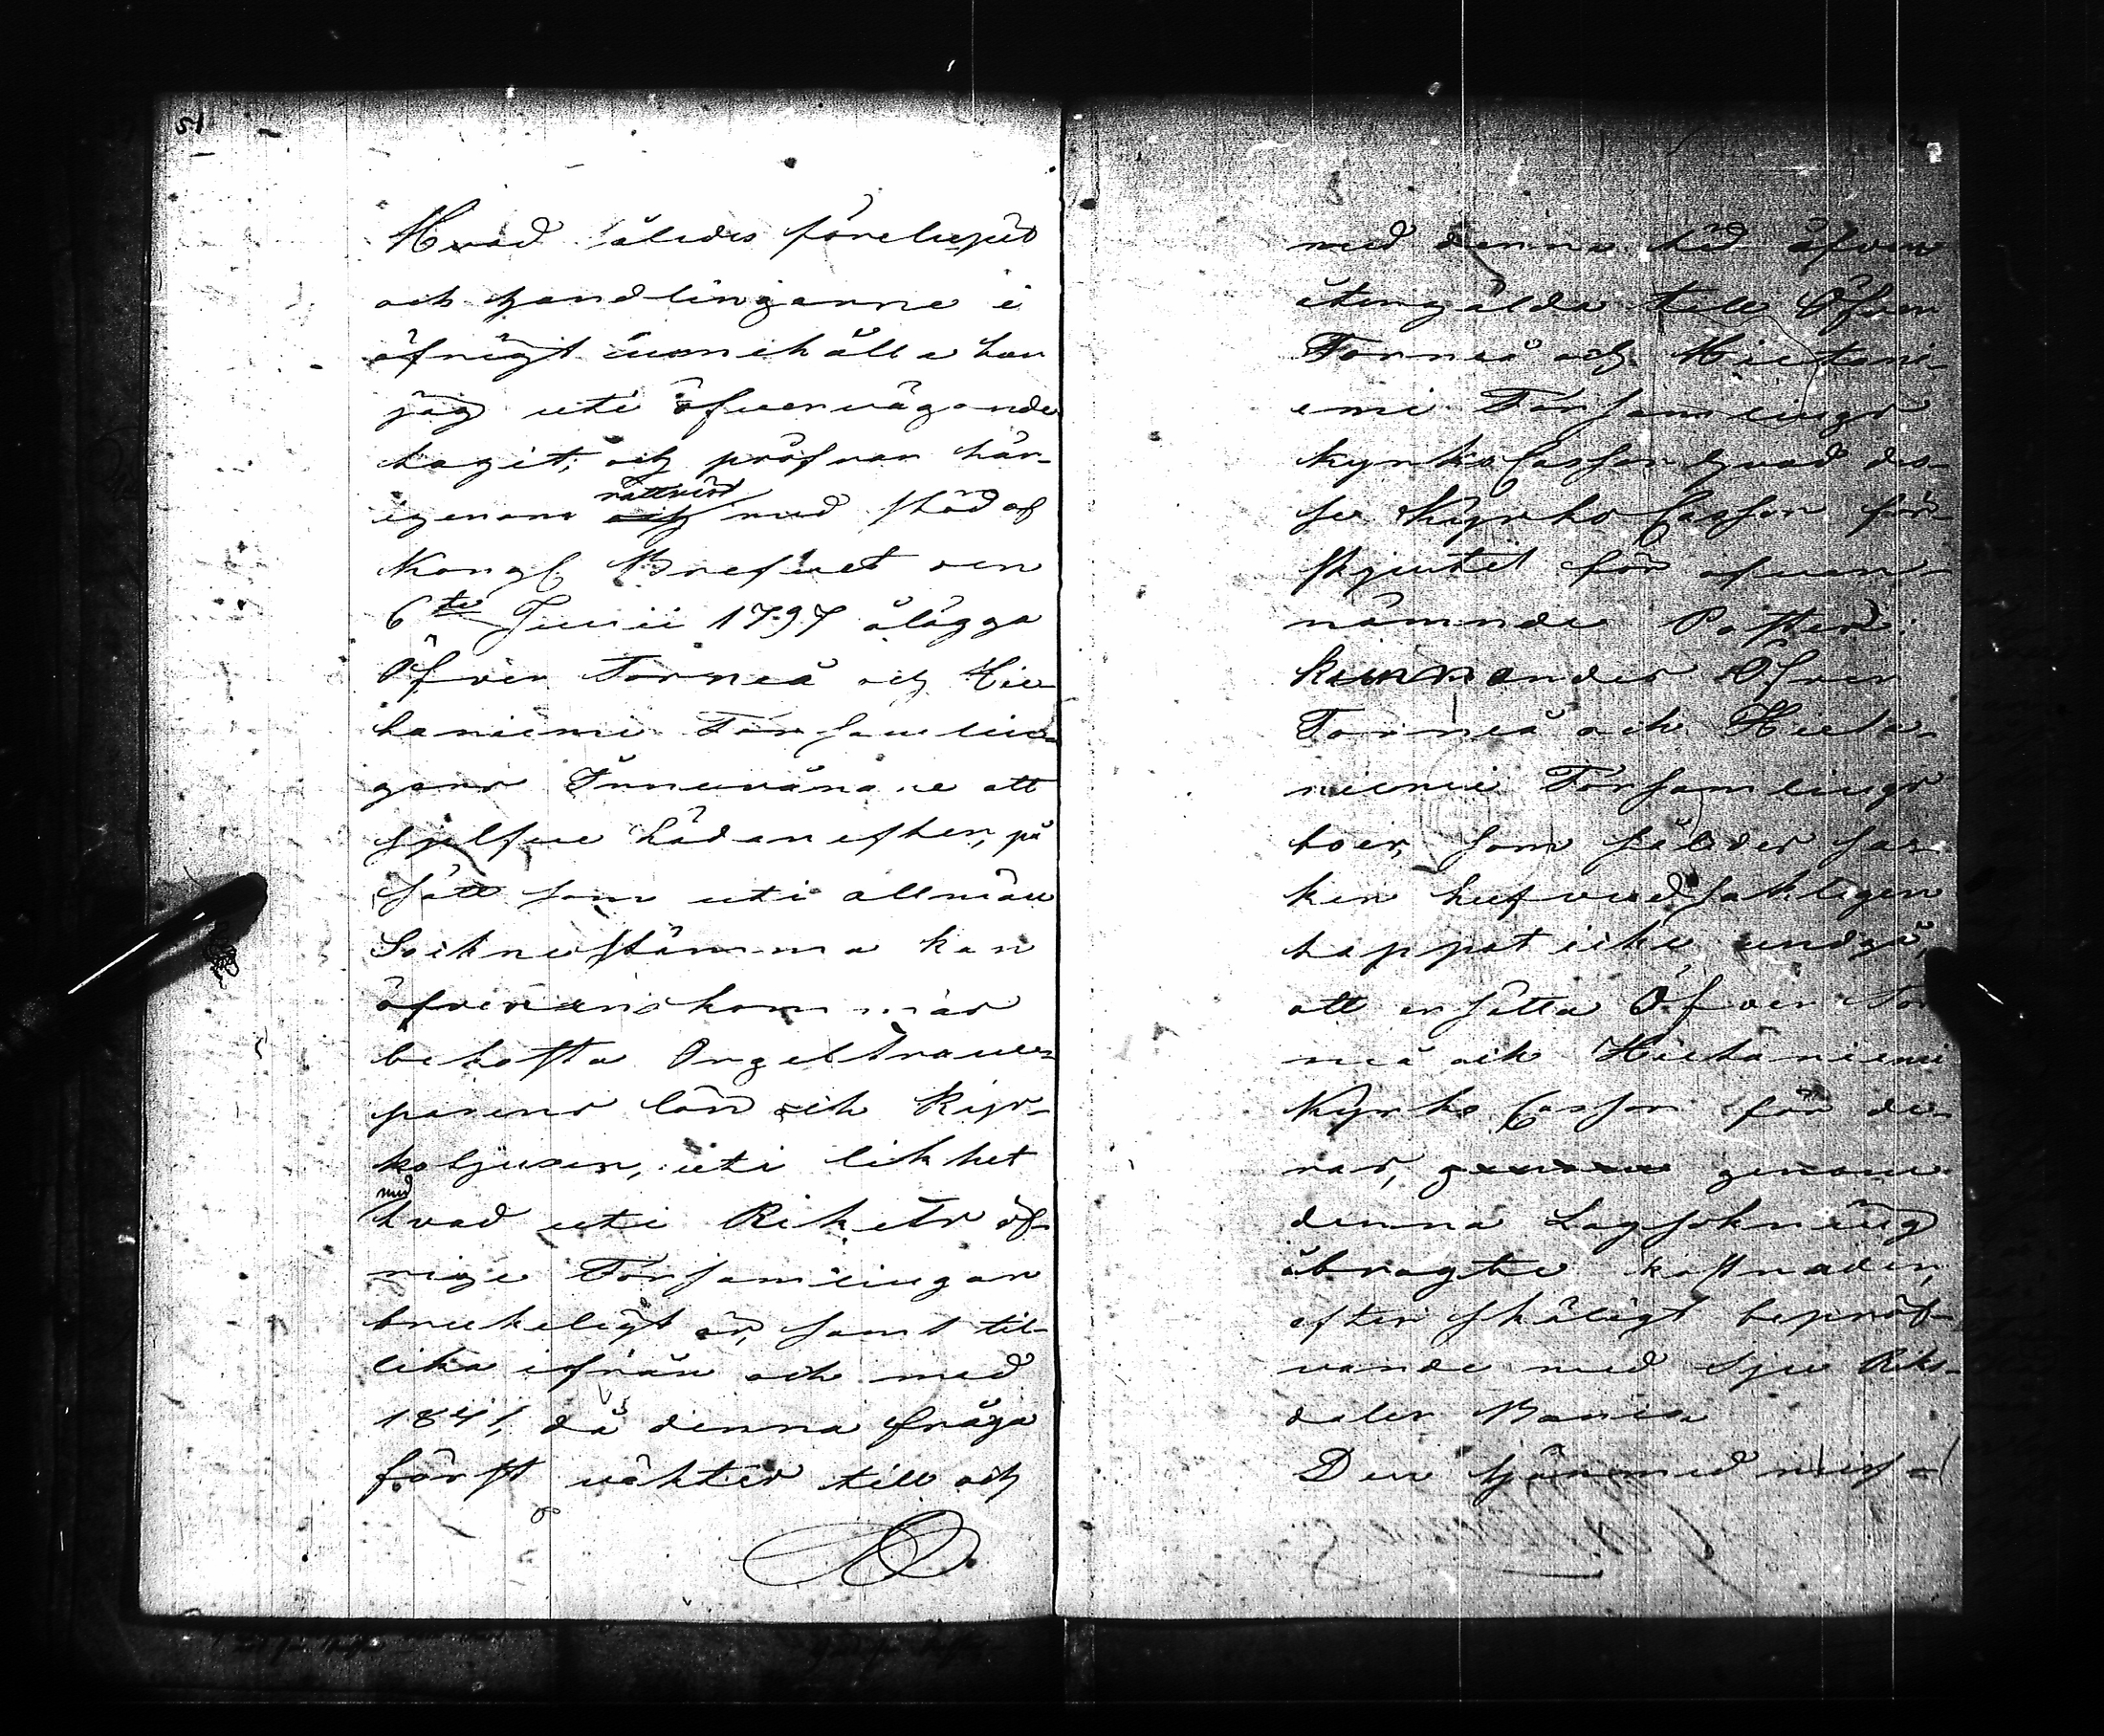 51
Hvad således förelupit
och handlingarne i
öfrigt innehålla har
jag uti öfvervägande
tagit; och pröfvar här-
igenom rättvist med stöd af
Kongl Brefvet den
6te Junii 1797 ålägga
Öfver Torneå och Hie
taniemi Församlin-
gars Innevånare att
sjelfve hädanefter, på
sätt som uti allmän
Sockne stämma kan
öfverenskommas
bekosta Orgeltram-
parens lön och Kyr-
koljusen, uti likhet
med
hvad uti Rikets öf-
rige Församlingar
brukeligt är, samt til-
lika ifrån och med
1841, då denna fråga
först väktes till och
med denna tid äfven
återgälda till Öfver
Torneå och Hietani-
emi Församlings
Kyrko Cassor hvad des-
se Kyrko Cassor för-
skjutit för ofvan-
nämnde Posters.
kunnandes Öfver
Torneå och Hieta-
niemi Församlings
boer, som således sa-
ken hufvudsakligen
tappat icke undgå,
att ersätta Öfver Tor
neå och Hietaniemi
Kyrko Cassor för de-
ras, genom
denna Lagsökning
åbragte kostnader,
efter skäligt bepröf-
vande med sju Riks-
daler Banco
Den härmed miss-